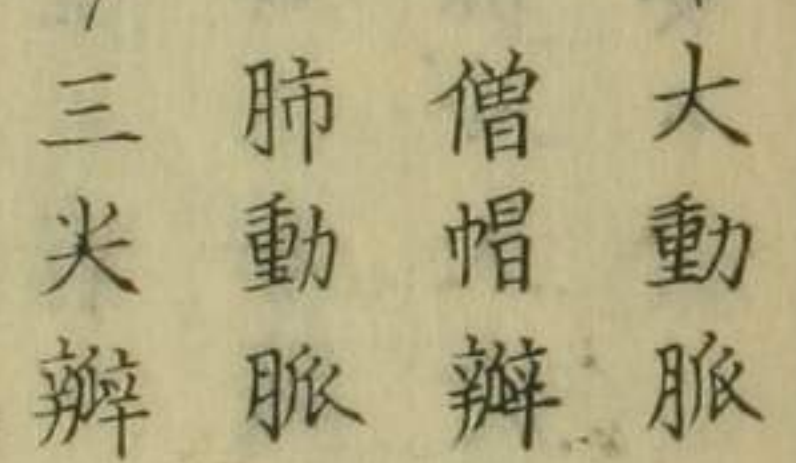 大動脈
僧帽瓣
肺動脈
三尖瓣